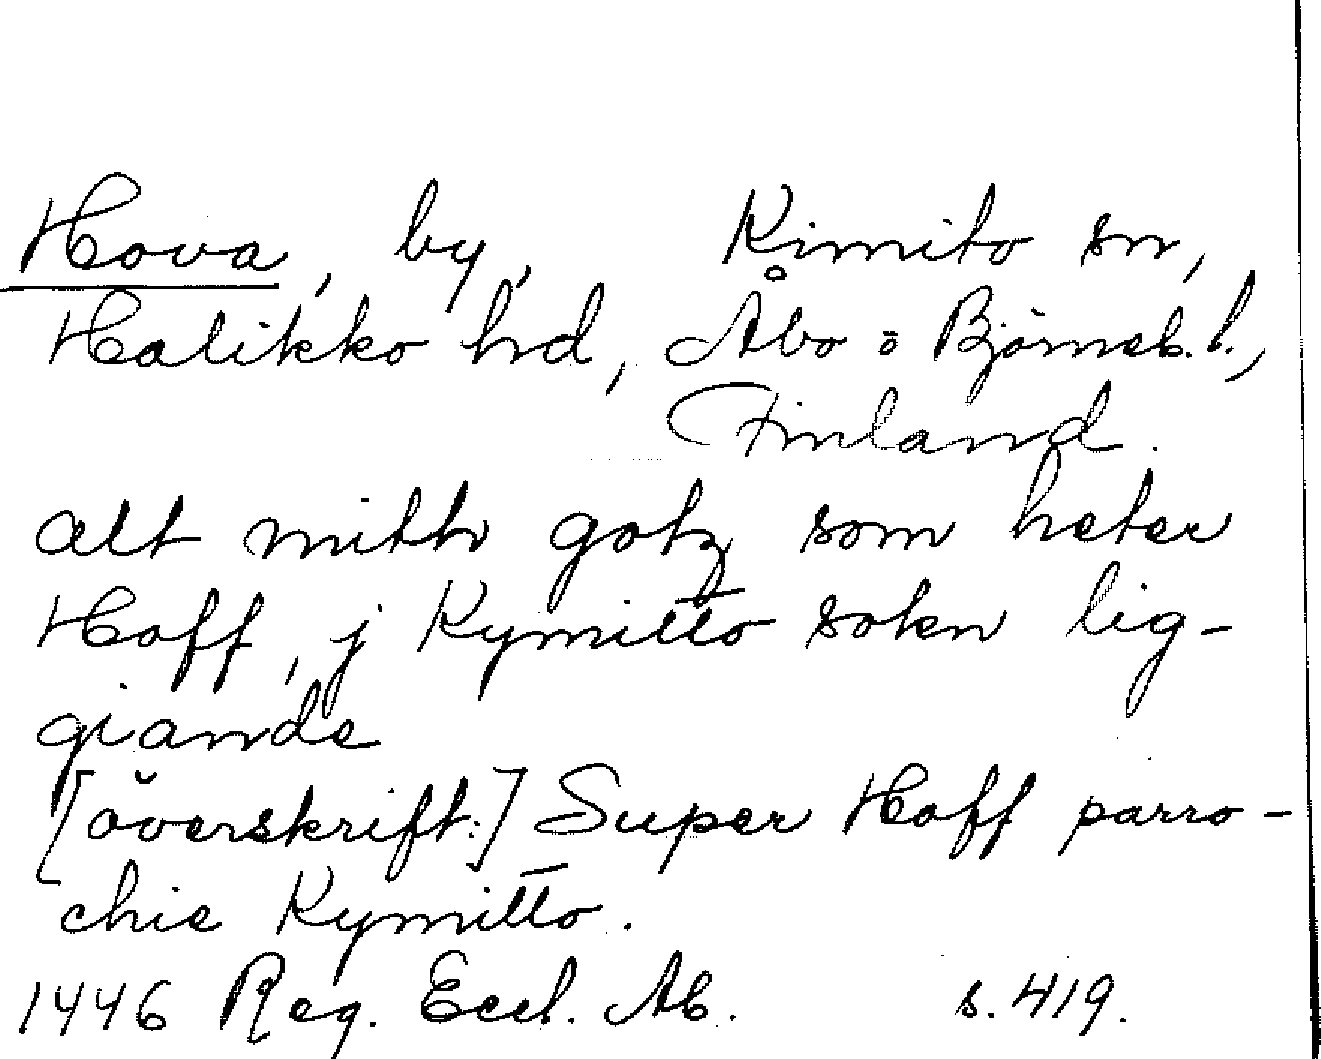 Hova, by, Kimito sn,
Halikko hd, Åbo o Björneb. l.,
Finland.
alt mitth gotz som heter
Hoff, j Kymitto sokn lig-
giande
[överskrift:] Super Hoff parro-
chie Kymitto.
1446 Reg. Eccl. Ab. s. 419.